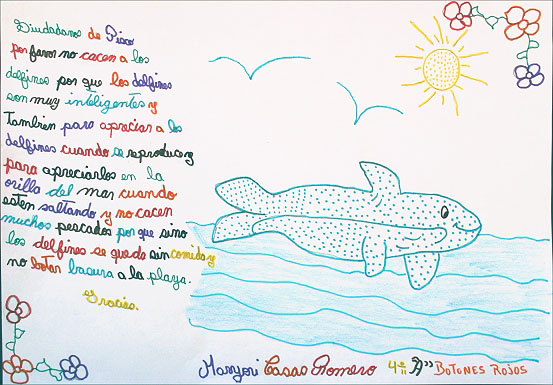 Ciudadanos de Pisco
por favor no cacen a los
delfines por que los delfines
son muy inteligentes y
Tambien para apreciar a los
delfines cuando se reproduce y
para apreciarlos en la
orilla del mar cuando
esten saltando y no cacen
muchos pescados por que sino
los delfines se quede sin comida y
no botar basura a la playa.
Gracias.
Maryori Casas Romero 4º "A" BOTONES ROJOS